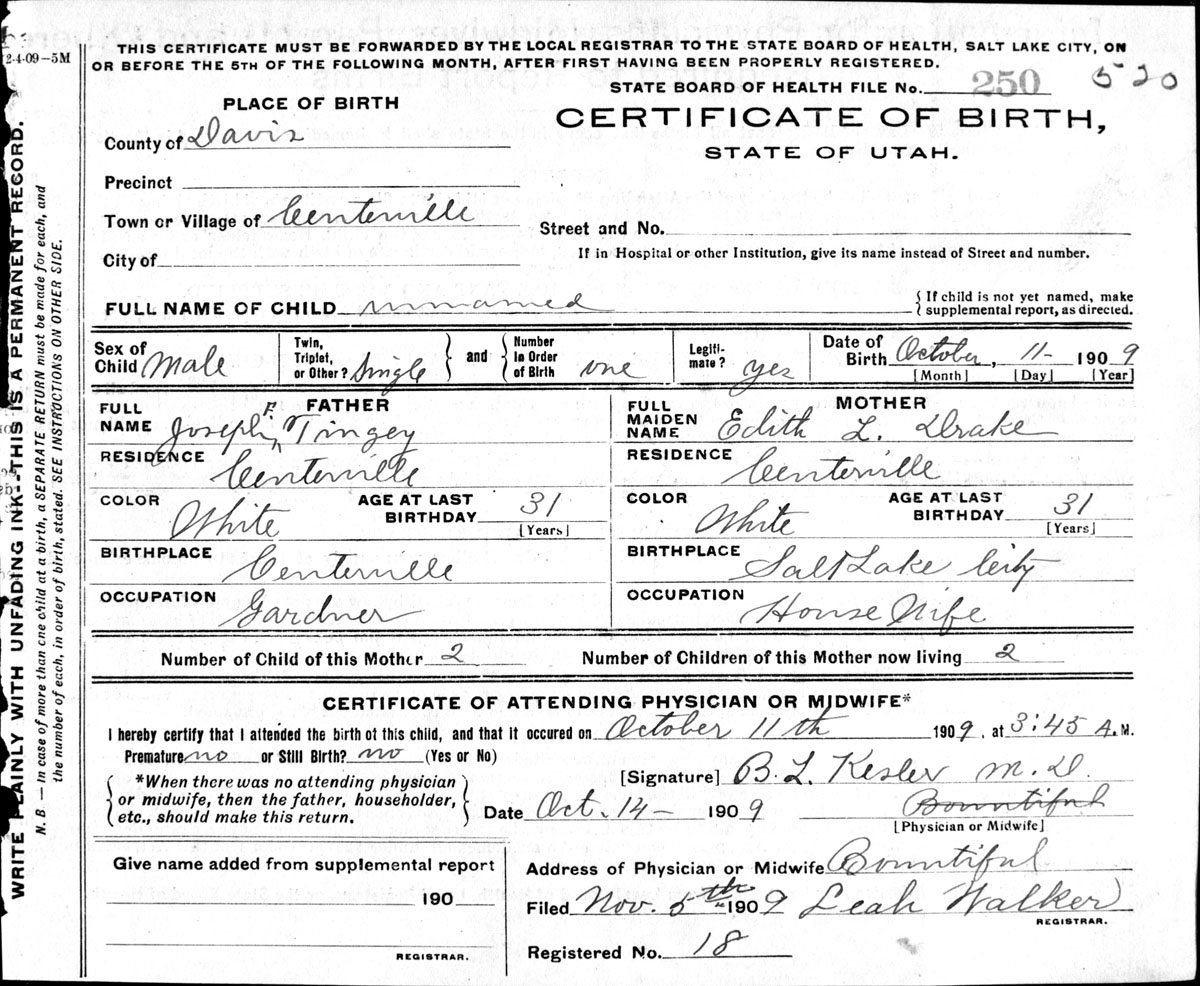 2-4-09-5M
THIS CERTIFICATE MUST BE FORWARDED BY THE LOCAL REGISTRAR TO THE STATE BOARD OF HEALTH, SALT LAKE CITY, ON
OR BEFORE THE 5TH OF THE FOLLOWING MONTH, AFTER FIRST HAVING BEEN PROPERLY REGISTERED.
STATE BOARD OF HEALTH FILE No. 250 520
PLACE OF BIRTH
CERTIFICATE OF BIRTH,
STATE OF UTAH.
County of Davis
Precinct
Town or Village of Centerville
Street and No.
City of
If in Hospital or other Institution, give its name instead of Street and number.
FULL NAME OF CHILD unnamed
{ If child is not yet named, make
supplemental report, as directed.
Sex of Child Male
Twin, Triplet, or Other? Single } and { Number in Order of Birth one
Legiti-mate? yes
Date of Birth October, 11- 1909
[Month] [Day] [Year]
FATHER
FULL NAME Joseph F. Tingey
RESIDENCE Centerville
COLOR White AGE AT LAST BIRTHDAY 31 [Years]
BIRTHPLACE Centerville
OCCUPATION Gardner
MOTHER
FULL MAIDEN NAME Edith L. Drake
RESIDENCE Centerville
COLOR White AGE AT LAST BIRTHDAY 31 [Years]
BIRTHPLACE Salt Lake City
OCCUPATION House Wife
Number of Child of this Mother 2 Number of Children of this Mother now living 2
CERTIFICATE OF ATTENDING PHYSICIAN OR MIDWIFE*
I hereby certify that I attended the birth of this child, and that it occured on October 11th 1909, at 3:45 A.M.
Premature no or Still Birth? no (Yes or No)
{ *When there was no attending physician
or midwife, then the father, householder,
etc., should make this return. }
[Signature] B. L. Kesler M.D.
Date Oct. 14- 1909 Bountiful
[Physician or Midwife]
Give name added from supplemental report
190
REGISTRAR.
Address of Physician or Midwife Bountiful
Filed Nov. 5th 1909 Leah Walker
REGISTRAR.
Registered No. 18
WRITE PLAINLY WITH UNFADING INK--THIS IS A PERMANENT RECORD.
N. B.—In case of more than one child at a birth, a SEPARATE RETURN must be made for each, and
the number of each, in order of birth, stated. SEE INSTRUCTIONS ON OTHER SIDE.